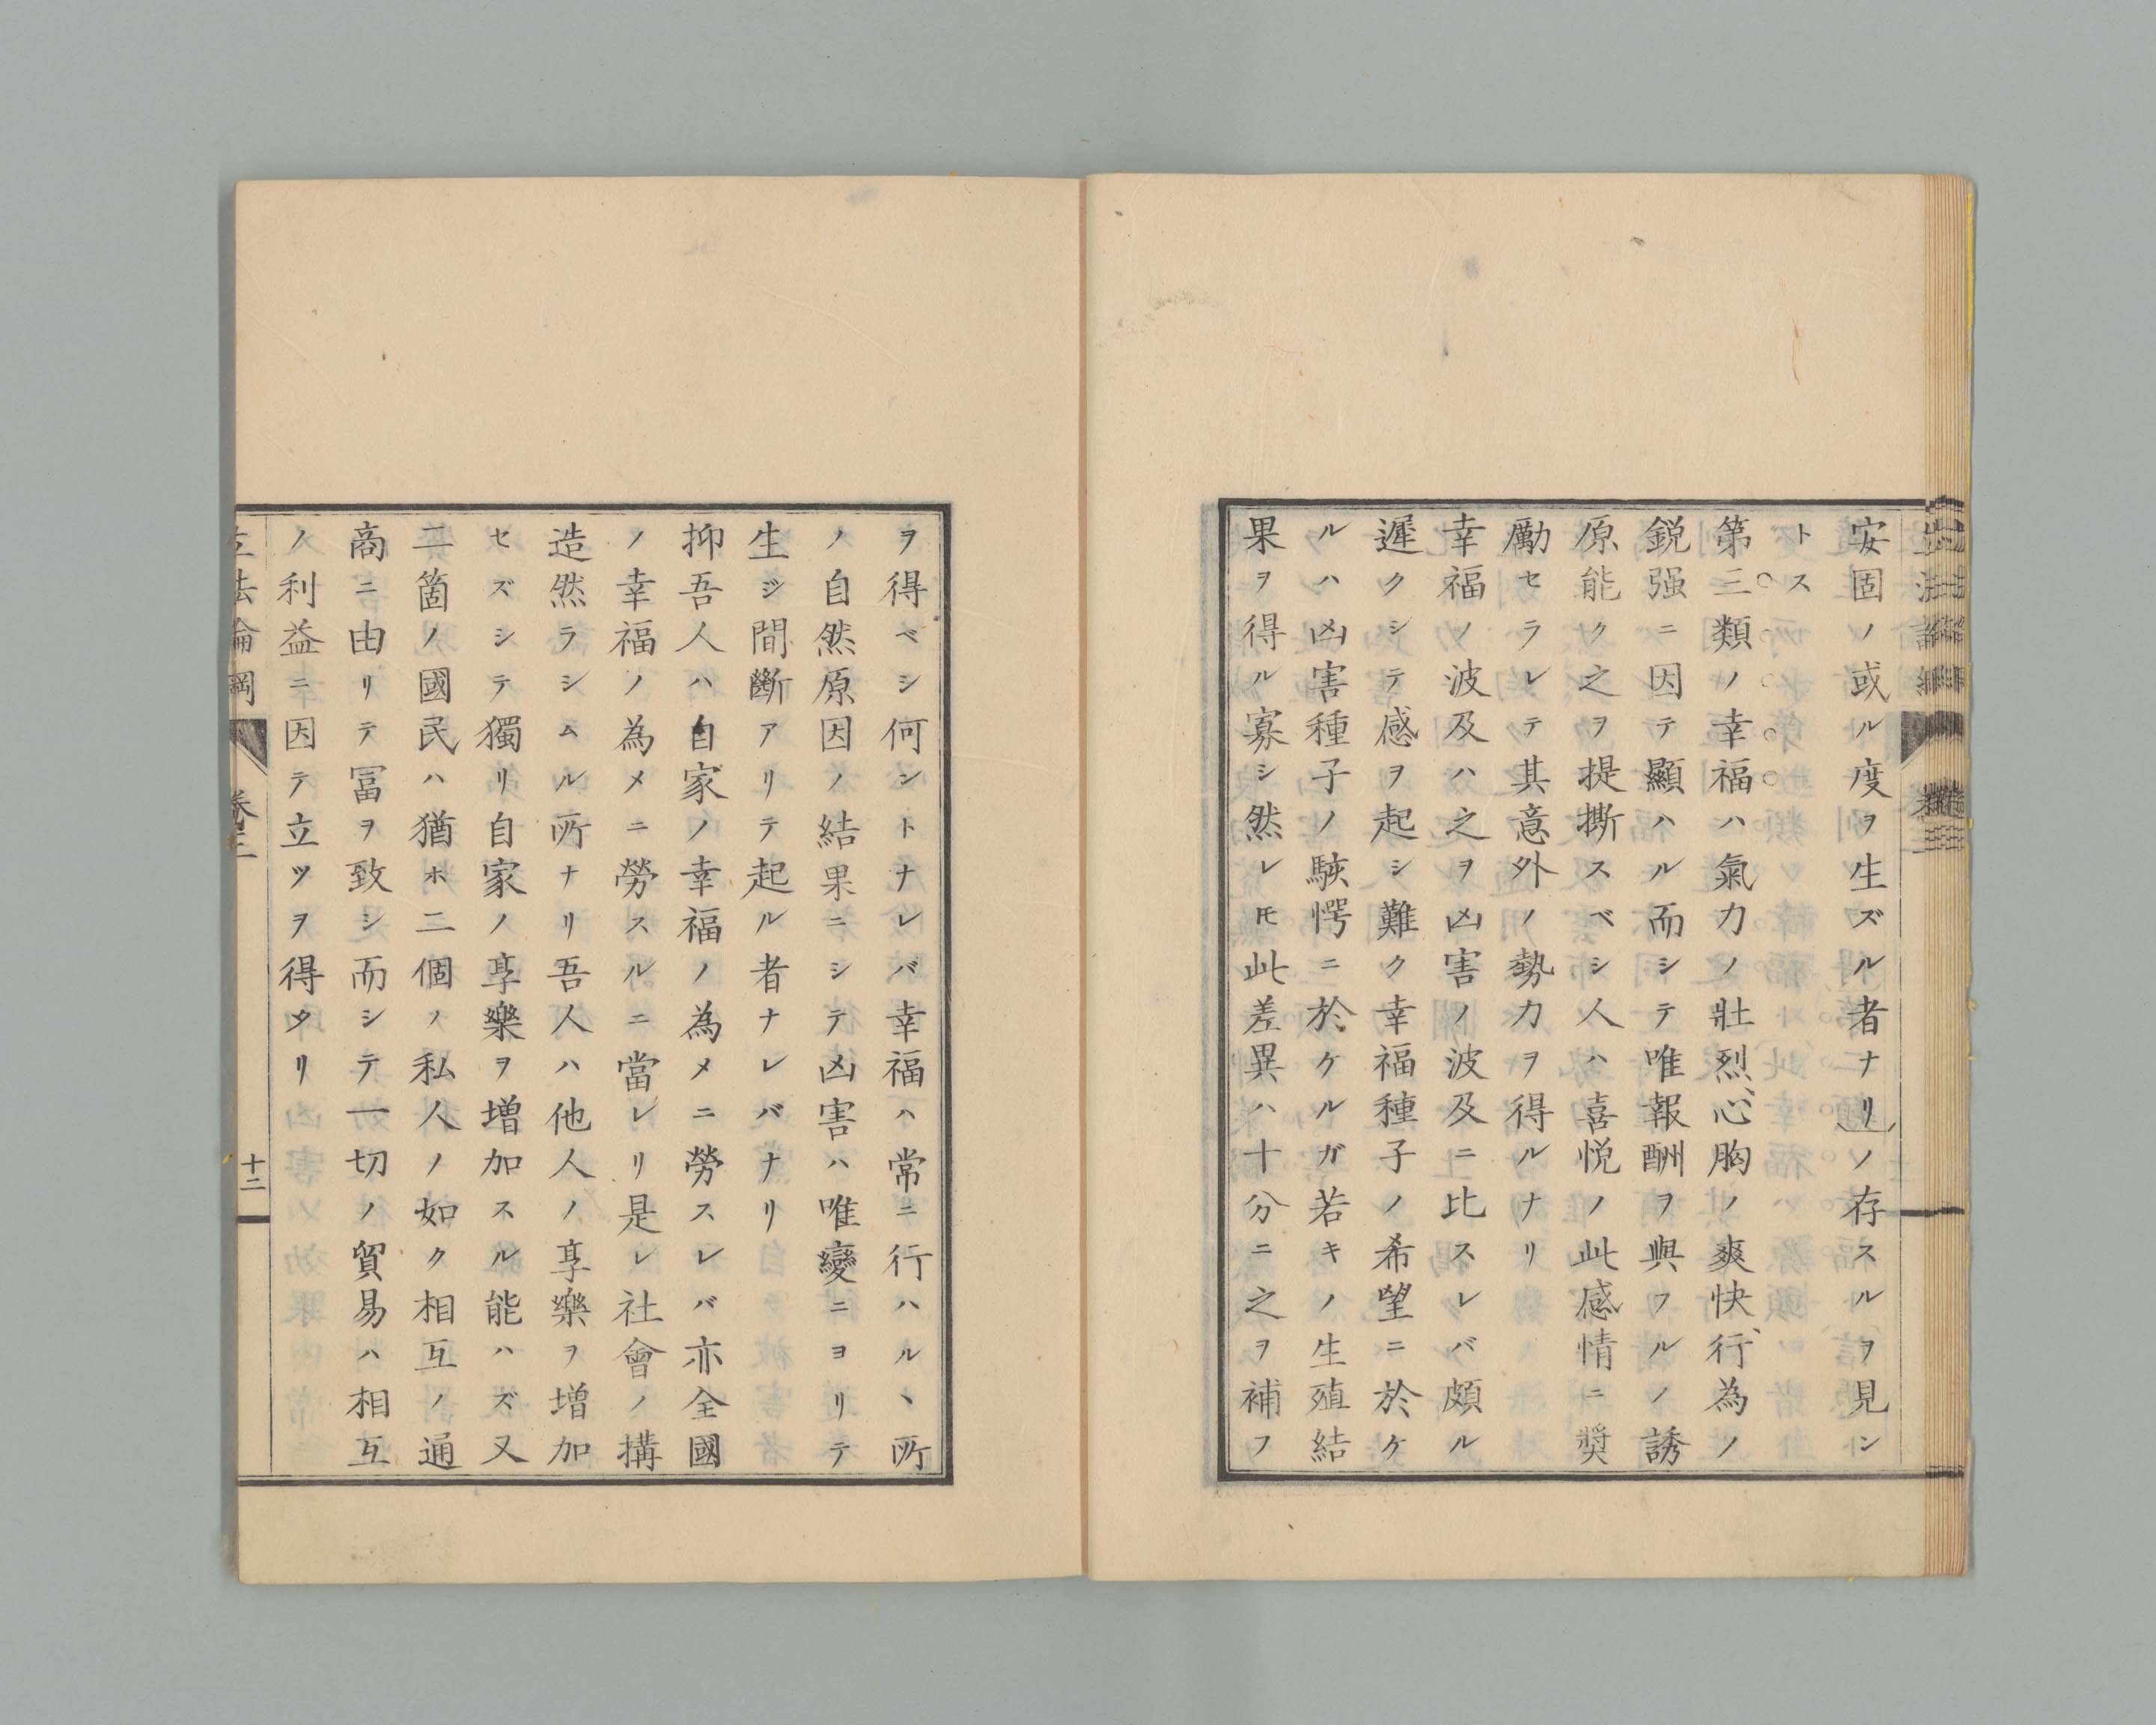 安固ノ或ル度ヲ生ズル者ナリノ存スルヲ見ン
トス
第三類ノ幸福ハ氣力ノ壯烈心胸ノ爽快行為ノ
鋭强ニ因テ顯ハル而シテ唯報酬ヲ與フルノ誘
原能ク之ヲ提撕スベシ人ハ喜悦ノ此感情ニ奨
勵セラレテ其意外ノ勢力ヲ得ルナリ
幸福ノ波及ハ之ヲ凶害ノ波及ニ比スレバ頗ル
遲クシテ感ヲ起シ難ク幸福種子ノ希望ニ於ケ
ルハ凶害種子ノ駭愕ニ於ケルガ若キノ生殖結
果ヲ得ル寡シ然レ𪜈此差異ハ十分ニ之ヲ補フ
ヲ得ベシ何ントナレバ幸福ハ常ニ行ハルヽ所
ノ自然原因ノ結果ニシテ凶害ハ唯變ニヨリテ
生ジ間斷アリテ起ル者ナレバナリ
抑吾人ハ自家ノ幸福ノ為メニ勞スレバ亦全國
ノ幸福ノ為メニ勞スルニ當レリ是レ社會ノ搆
造然ラシムル所ナリ吾人ハ他人ノ享樂ヲ增加
セズシテ獨リ自家ノ享樂ヲ增加スル能ハズ又
二箇ノ國民ハ猶ホ二個ノ私人ノ如ク相互ノ通
商ニ由リテ冨ヲ致シ而シテ一切ノ貿易ハ相互
ノ利益ニ因テ立ツヲ得タリ
立法論綱 卷三 十二